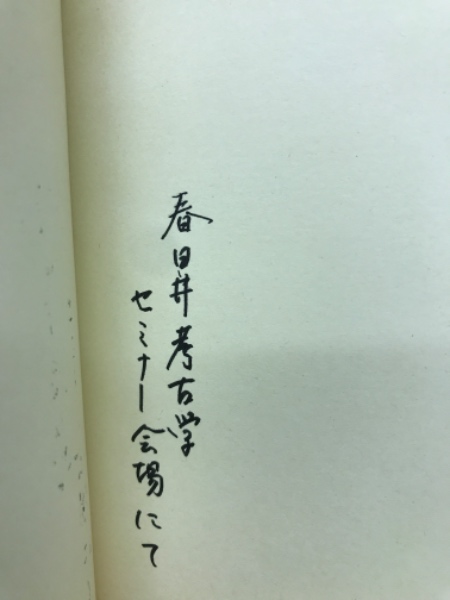 春日井考古学
セミナー会場にて